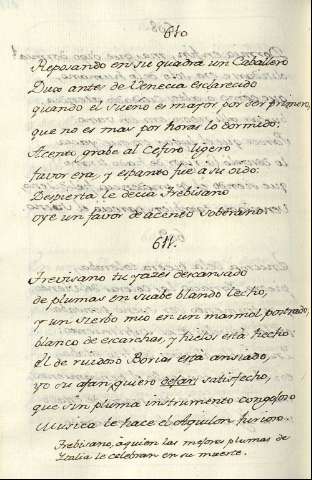 610
Reposando en su quadra un Caballero
Dux antes de Venecia esclarecido
quando el sueño es mayor por ser primero,
que no es mas por horas lo dormido:
Acento, grabe al Cefiro ligero
furor era, y espanto fue a su oido:
Despierta le decia Trebisano
oye un favor de acento soberano.
611.
Trevisano tu yazes descansado
de plumas en suabe blando lecho,
y un sierbo mio en un marmol postrado,
blanco de escarchas, y hielos está hecho:
El de ruidoso Borias está ansiado,
yo su afan quiero dejar satisfecho,
que sin pluma instrumento congojoso
Musica le hace el Aquilon furioso.
Trebisano, à quien las mejores plumas de
Italia le celebran en su muerte.